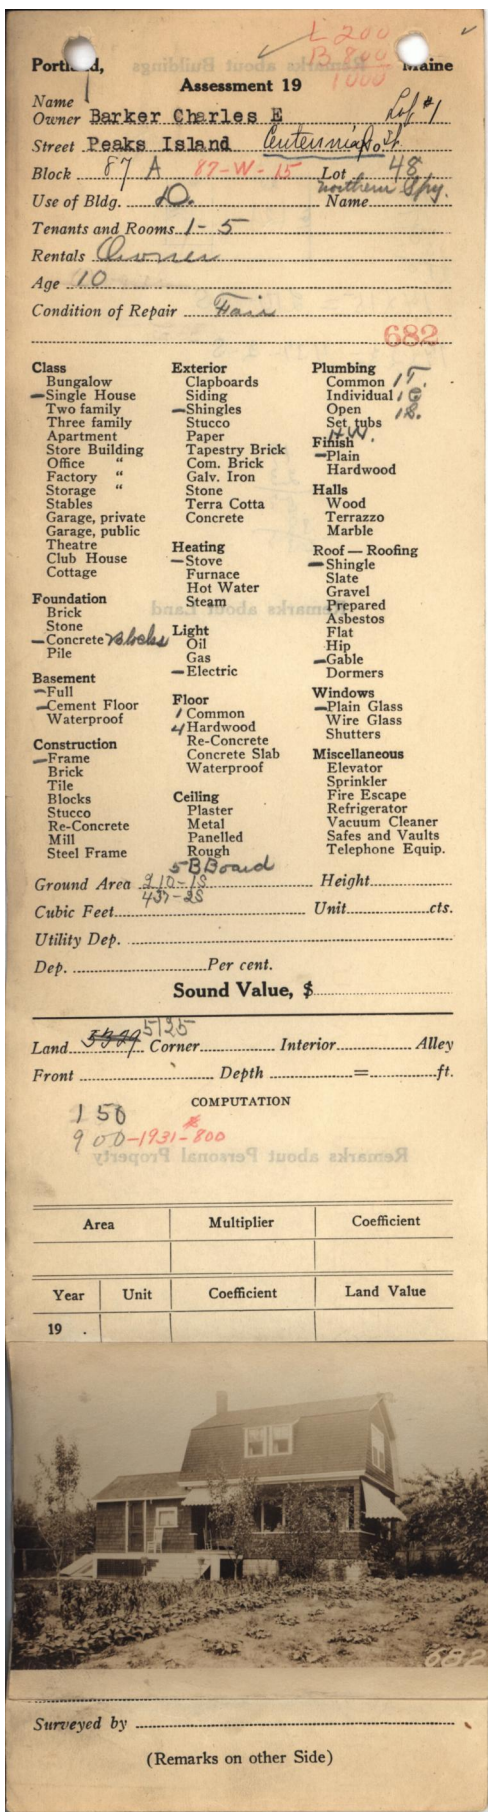 L 200
B 800
1000
Portland, Maine
Assessment 19
Name
Owner Barker Charles E Lot #1
Street Peaks Island Centennial St
Block 87 A 87-W-15 Lot 48
Northern Spy.
Use of Bldg. D. Name
Tenants and Rooms 1-5
Rentals Owner
Age 10
Condition of Repair Fair
682
Class
Bungalow
Single House
Two family
Three family
Apartment
Store Building
Office "
Factory "
Storage "
Stables
Garage, private
Garage, public
Theatre
Club House
Cottage
Foundation
Brick
Stone
Concrete Blocks
Pile
Basement
Full
Cement Floor
Waterproof
Construction
Frame
Brick
Tile
Blocks
Stucco
Re-Concrete
Mill
Steel Frame
Exterior
Clapboards
Siding
Shingles
Stucco
Paper
Tapestry Brick
Com. Brick
Galv. Iron
Stone
Terra Cotta
Concrete
Heating
Stove
Furnace
Hot Water
Steam
Light
Oil
Gas
Electric
Floor
1 Common
4 Hardwood
Re-Concrete
Concrete Slab
Waterproof
Ceiling
Plaster
Metal
Panelled
Rough
5 B Board
Plumbing
Common 1 T.
Individual 1
Open 1 S.
Set tubs
H.W.
Finish
Plain
Hardwood
Halls
Wood
Terrazzo
Marble
Roof — Roofing
Shingle
Slate
Gravel
Prepared
Asbestos
Flat
Hip
Gable
Dormers
Windows
Plain Glass
Wire Glass
Shutters
Miscellaneous
Elevator
Sprinkler
Fire Escape
Refrigerator
Vacuum Cleaner
Safes and Vaults
Telephone Equip.
Ground Area 910-1S Height
437-2S
Cubic Feet Unit cts.
Utility Dep.
Dep. Per cent.
Sound Value, $
5125
Land Corner Interior Alley
Front Depth = ft.
COMPUTATION
150
900-1931-800
Remarks about Personal Property
Area Multiplier Coefficient
Year Unit Coefficient Land Value
19 .
682
Surveyed by
(Remarks on other Side)